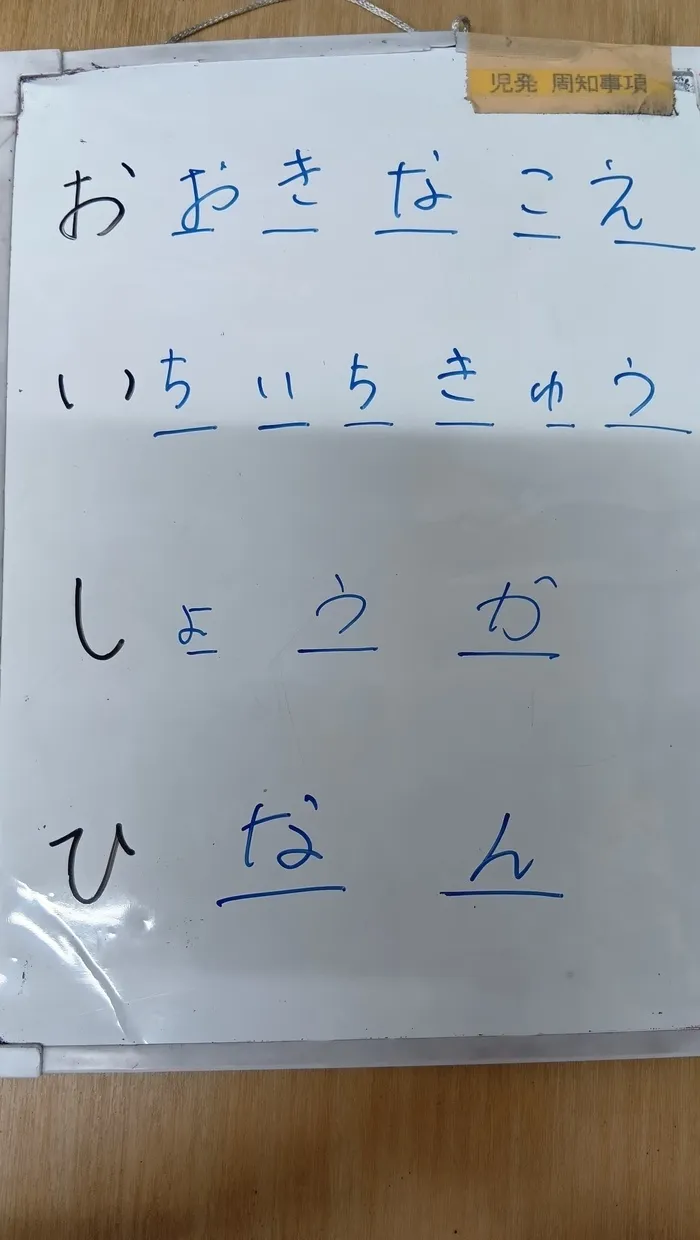 児発 周知事項
おおきなこえ
いちいちきゅう
しょうか
ひなん